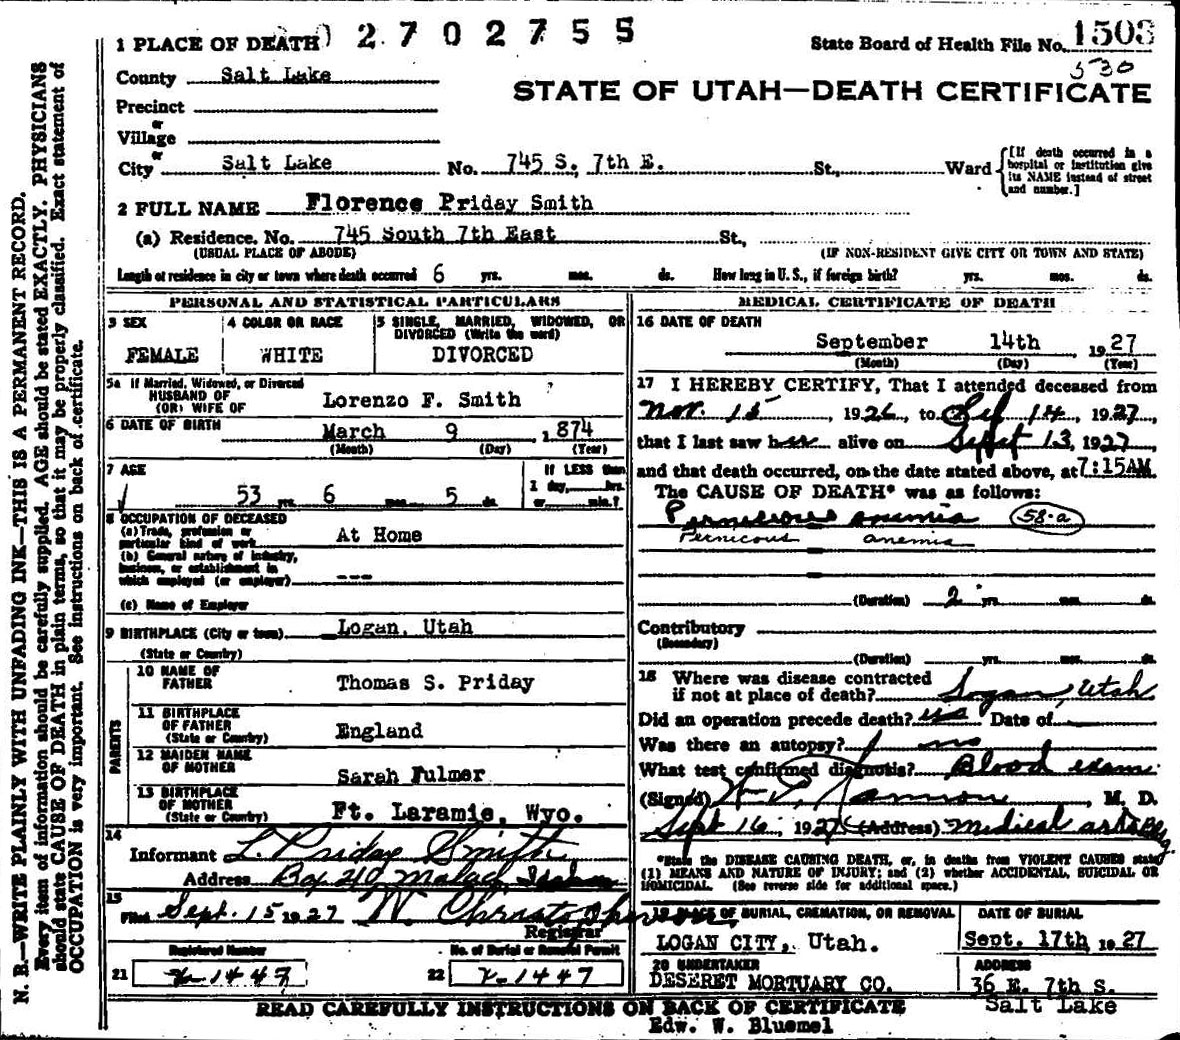 1 PLACE OF DEATH 2702755
State Board of Health File No. 1503
530
County Salt Lake
STATE OF UTAH—DEATH CERTIFICATE
Precinct
or
Village
or
City Salt Lake No. 745 S. 7th E. St., Ward
[If death occurred in a hospital or institution give its NAME instead of street and number.]
2 FULL NAME Florence Priday Smith
(a) Residence. No. 745 South 7th East St.,
(USUAL PLACE OF ABODE) (IF NON-RESIDENT GIVE CITY OR TOWN AND STATE)
Length of residence in city or town where death occurred 6 yrs. mos. ds. How long in U. S., if foreign birth? yrs. mos. ds.
PERSONAL AND STATISTICAL PARTICULARS
3 SEX
FEMALE
4 COLOR OR RACE
WHITE
5 SINGLE, MARRIED, WIDOWED, OR
DIVORCED (Write the word)
DIVORCED
5a If Married, Widowed, or Divorced
HUSBAND OF
(OR) WIFE OF
Lorenzo F. Smith
6 DATE OF BIRTH
March 9 1874
(Month) (Day) (Year)
7 AGE
53 yrs. 6 mos. 5 ds.
If LESS than
1 day, hrs.
or min.?
8 OCCUPATION OF DECEASED
(a) Trade, profession or
particular kind of work At Home
(b) General nature of industry,
business, or establishment in
which employed (or employer) ---
(c) Name of Employer
9 BIRTHPLACE (City or town) Logan, Utah
(State or Country)
PARENTS
10 NAME OF
FATHER Thomas S. Priday
11 BIRTHPLACE
OF FATHER
(State or Country) England
12 MAIDEN NAME
OF MOTHER Sarah Fulmer
13 BIRTHPLACE
OF MOTHER
(State or Country) Ft. Laramie, Wyo.
14
Informant L. Priday Smith
Address Box 210, Malad, Idaho
15
Filed Sept. 15 1927
Registrar
Registered Number
21 1447
No. of Burial or Removal Permit
22 1447
MEDICAL CERTIFICATE OF DEATH
16 DATE OF DEATH
September 14th 1927
(Month) (Day) (Year)
17 I HEREBY CERTIFY, That I attended deceased from
Nov. 15, 1926, to Sep 14, 1927
that I last saw her alive on Sept 13, 1927
and that death occurred, on the date stated above, at 7:15AM.
The CAUSE OF DEATH* was as follows:
Pernicious anemia 58-a
Pernicous anemia
(Duration) 2 yrs. mos. ds.
Contributory
(Secondary)
(Duration) yrs. mos. ds.
18 Where was disease contracted
if not at place of death? Logan, Utah
Did an operation precede death? no Date of
Was there an autopsy? no
What test confirmed diagnosis? Blood exam
(Signed) M. D.
Sept 16, 1927 (Address) Medical arts Bldg.
*State the DISEASE CAUSING DEATH, or, in deaths from VIOLENT CAUSES state
(1) MEANS AND NATURE OF INJURY; and (2) whether ACCIDENTAL, SUICIDAL OR
HOMICIDAL. (See reverse side for additional space.)
19 PLACE OF BURIAL, CREMATION, OR REMOVAL
LOGAN CITY, Utah.
DATE OF BURIAL
Sept. 17th 1927
20 UNDERTAKER
DESERET MORTUARY CO.
Edw. W. Bluemel
ADDRESS
36 E. 7th S.
Salt Lake
READ CAREFULLY INSTRUCTIONS ON BACK OF CERTIFICATE
N. B.—WRITE PLAINLY WITH UNFADING INK—THIS IS A PERMANENT RECORD.
Every item of information should be carefully supplied. AGE should be stated EXACTLY. PHYSICIANS
should state CAUSE OF DEATH in plain terms, so that it may be properly classified. Exact statement of
OCCUPATION is very important. See instructions on back of certificate.